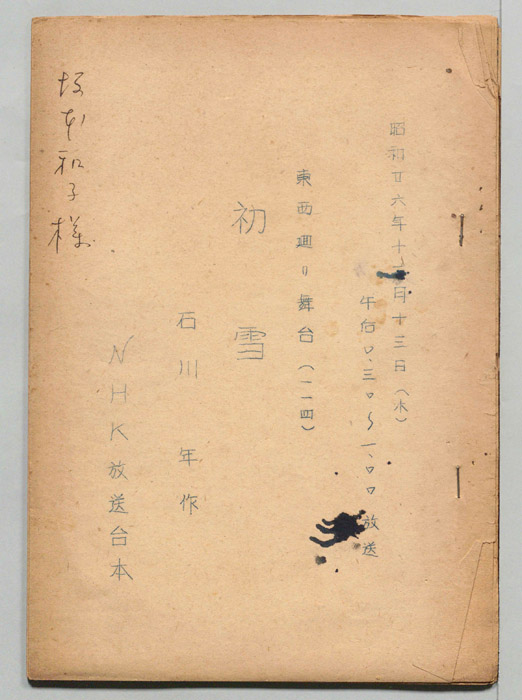 昭和廿六年十二月十三日(木)
午后〇、三〇〜一、〇〇 放送
東西廻り舞台(一一四)
初雪
石川 年作
NHK放送台本
坂本和子様